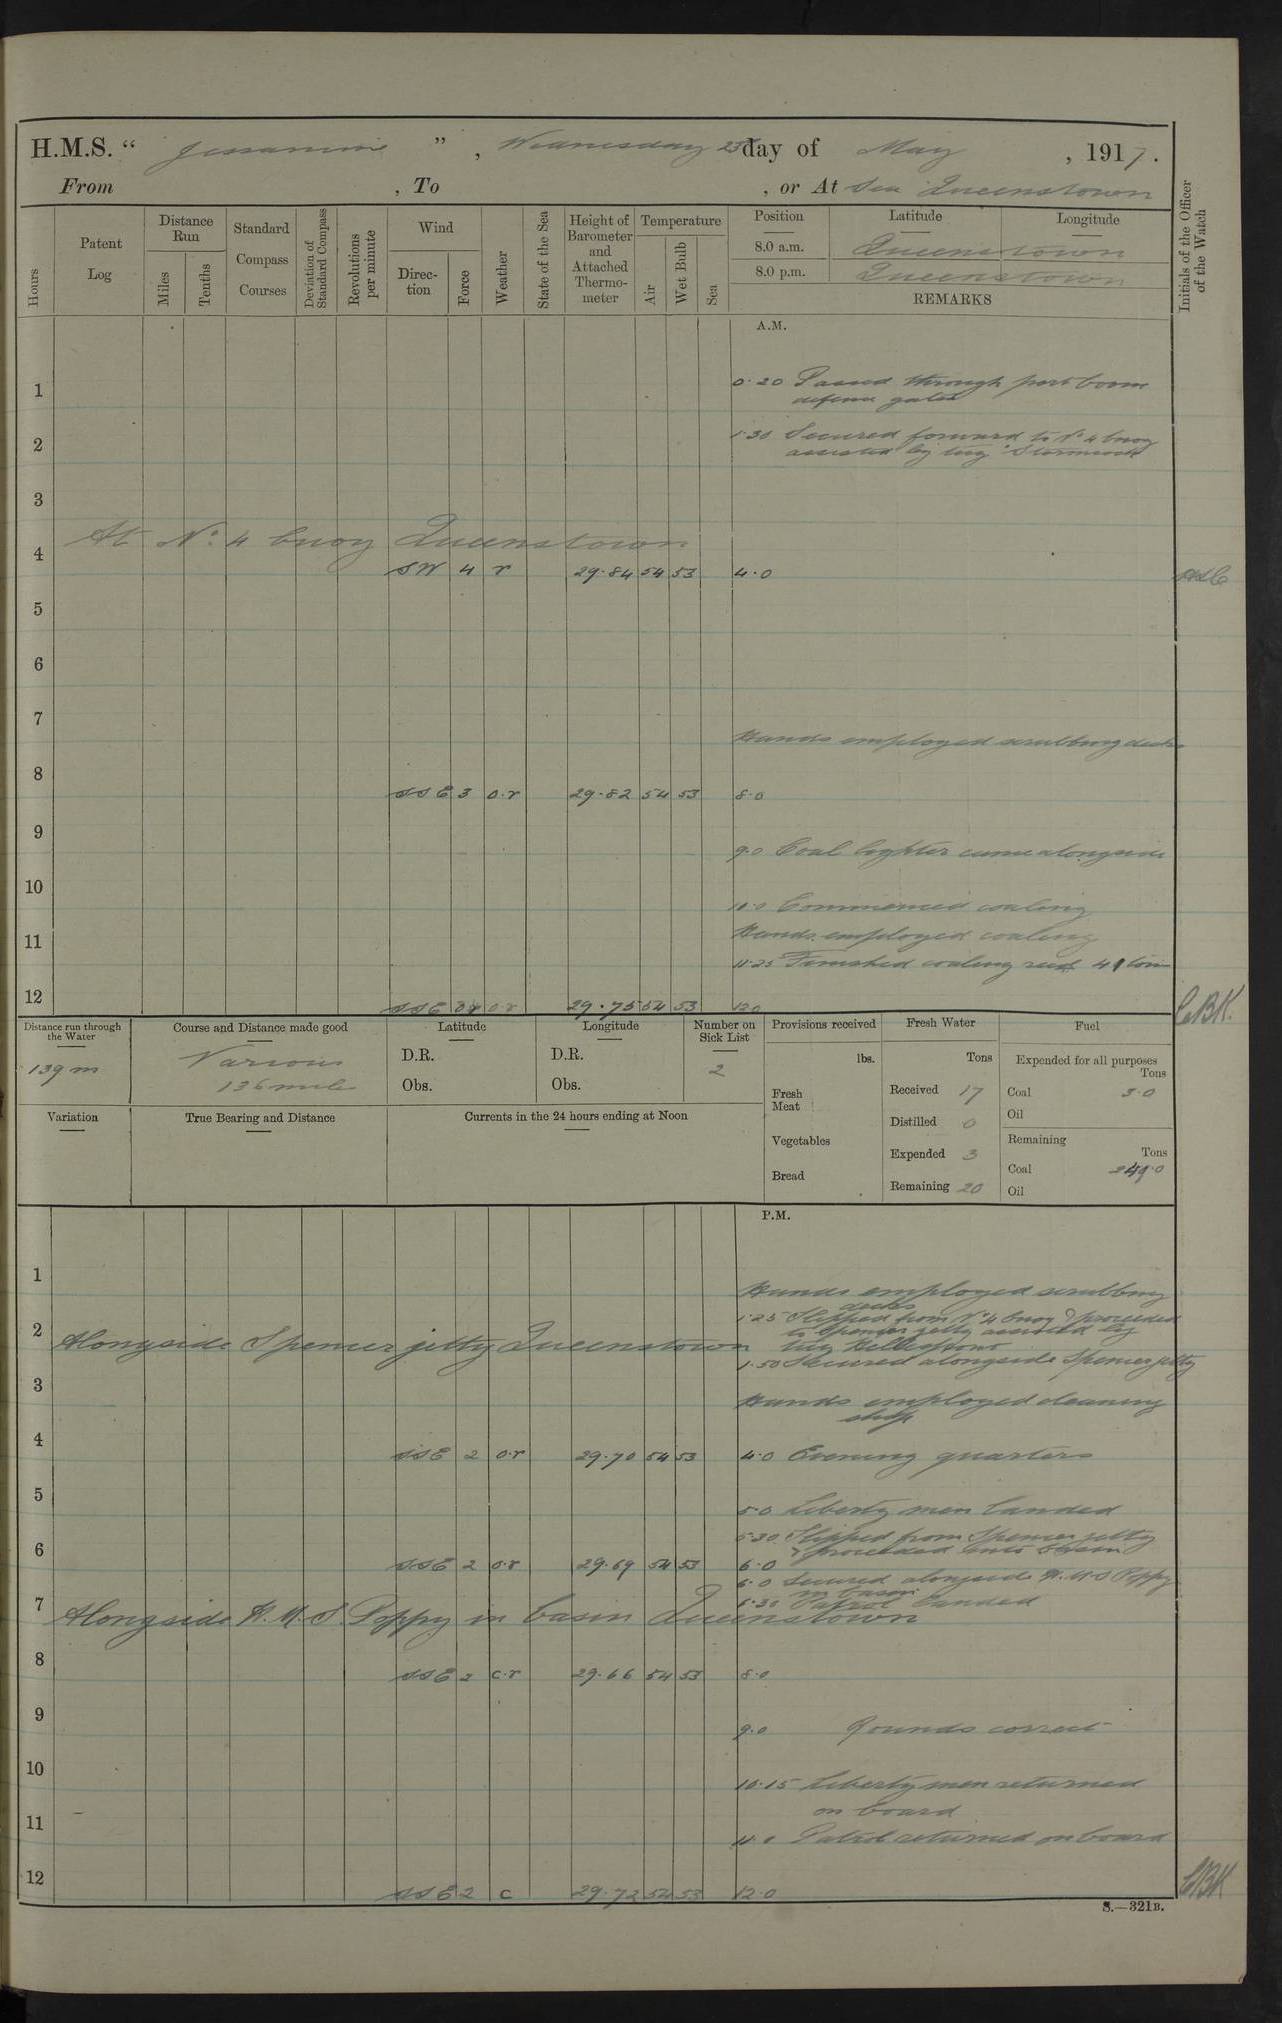 H.M.S. “ Jessamine ” , Wednesday 23 day of May , 1917.
From , To , or At Sea Queenstown
Hours
Patent Log
Distance Run
Miles
Tenths
Standard Compass Courses
Deviation of Standard Compass
Revolutions per minute
Wind
Direc-tion
Force
Weather
State of the Sea
Height of Barometer and Attached Thermo-meter
Temperature
Air
Wet Bulb
Sea
Position Latitude Longitude
8.0 a.m. Queenstown
8.0 p.m. Queenstown
REMARKS
Initials of the Officer of the Watch
A.M.
1
0.20 Passed through port boom
defence gates
2
1.30 Secured forward to No 4 buoy
assisted by tug "Stormcock"
3
At No. 4 buoy Queenstown
4
SW 4 r 29.84 54 53 4.0
5
6
7
Hands employed scrubbing decks
8
SSE 3 o.r 29.82 54 53 8.0
9
9.0 Coal lighter came alongside
10
10.0 Commenced coaling
11
Hands employed coaling
11.25 Finished coaling recd 41 tons
12
SSE o.r 29.75 54 53 12.0
C.B.K.
Distance run through the Water
139 m
Course and Distance made good
Various
136 miles
Latitude
D.R.
Obs.
Longitude
D.R.
Obs.
Number on Sick List
2
Provisions received
lbs.
Fresh Meat
Vegetables
Bread
Fresh Water
Tons
Received 17
Distilled 0
Expended 3
Remaining 20
Fuel
Expended for all purposes
Tons
Coal 3.0
Oil
Remaining
Tons
Coal 249.0
Oil
Variation
True Bearing and Distance
Currents in the 24 hours ending at Noon
P.M.
1
Hands employed scrubbing
decks
1.25 Slipped from No 4 buoy & proceeded
2
to Spencer jetty assisted by
Alongside Spencer jetty Queenstown
tug Hellespont
1.50 Secured alongside Spencer jetty
3
Hands employed cleaning
ship
4
SSE 2 o.r 29.70 54 53 4.0 Evening quarters
5
5.0 Liberty men landed
5.30 Slipped from Spencer jetty
6
& proceeded into basin
SSE 2 o.r 29.69 54 53 6.0
6.0 Secured alongside H.M.S Poppy
in basin
7
6.30 Patrol landed
Alongside H.M.S. Poppy in basin Queenstown
8
SSE 2 c.r 29.66 54 53 8.0
9
9.0 Rounds correct
10
10.15 Liberty men returned
on board
11
11.0 Patrol returned on board
12
SSE 2 c 29.72 54 53 12.0
CBK
S.—321B.